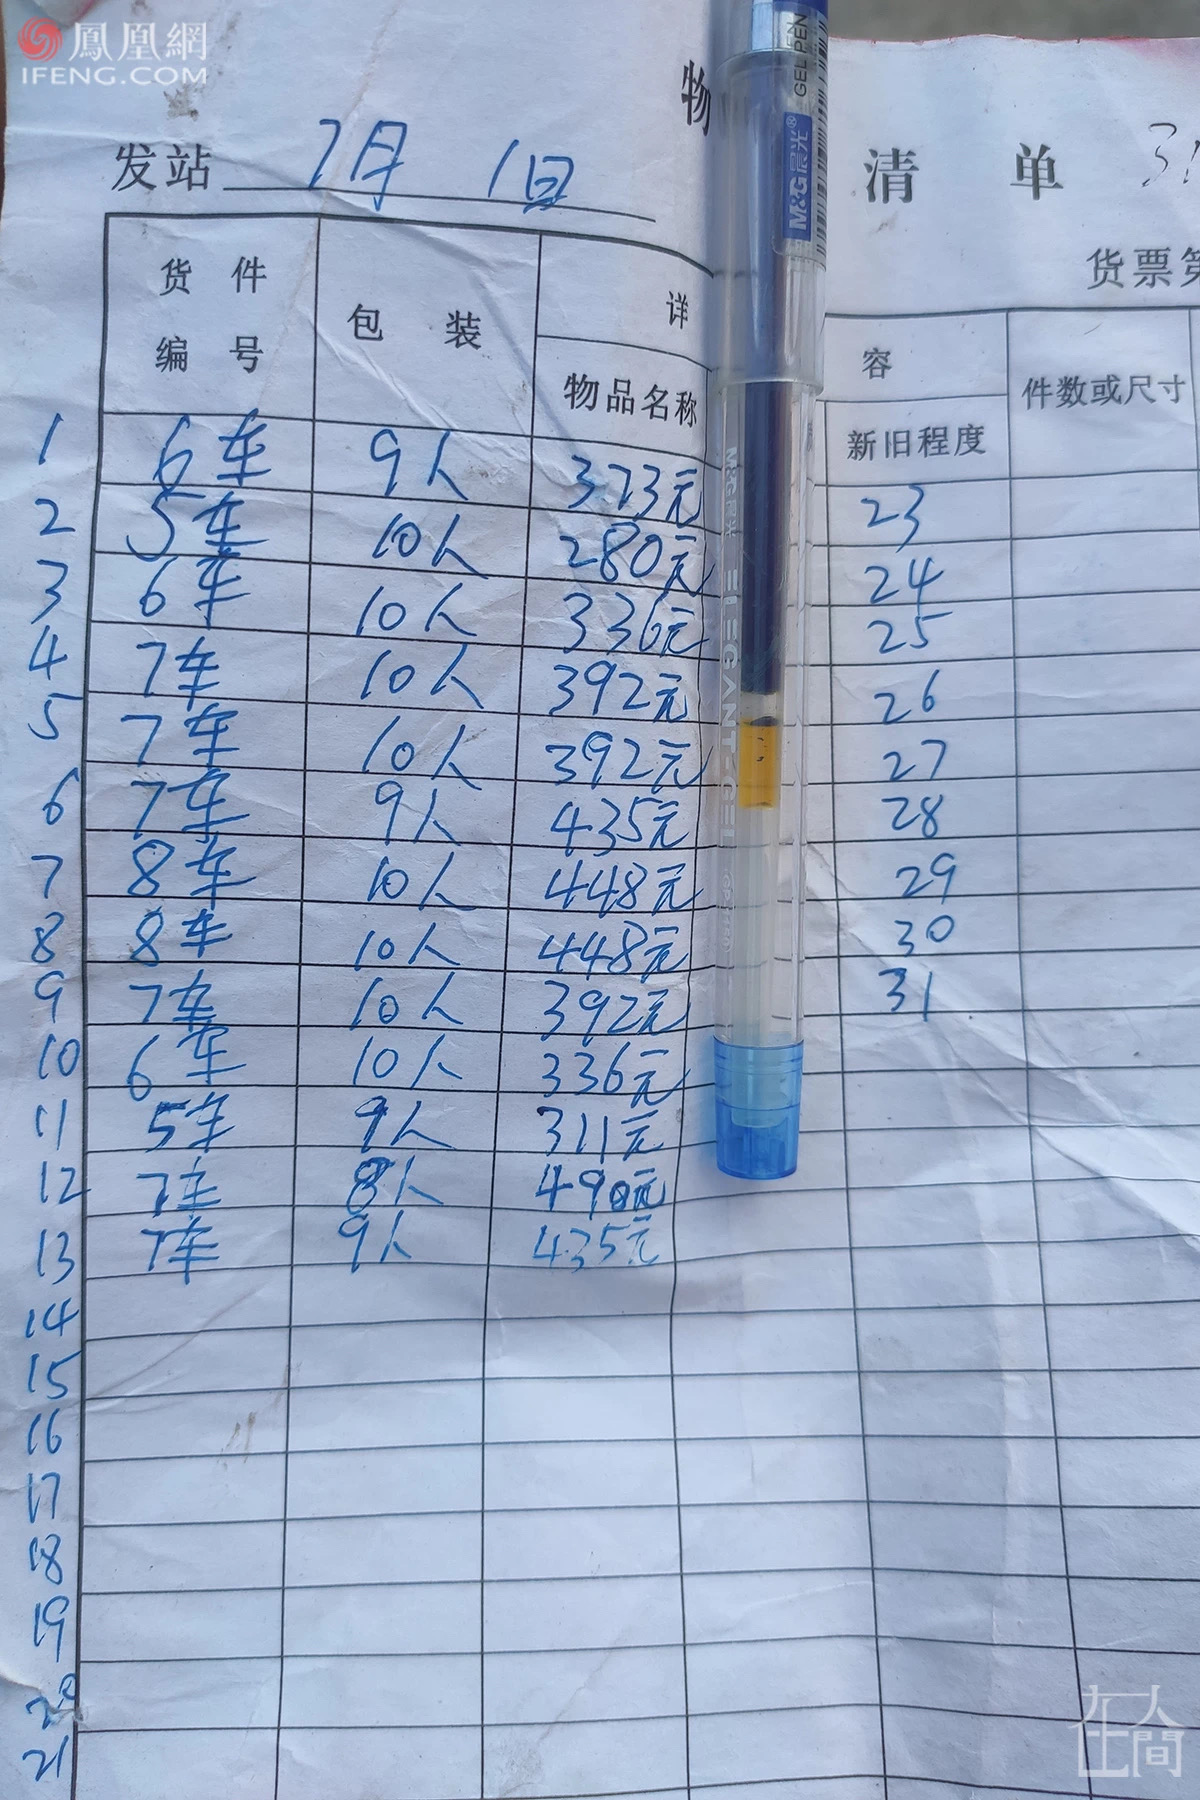 鳳凰網
IFENG.COM
GEL PEN
M&G晨光®
物 清 单
发站 7月 1日
货票第
货件编号 包装 详 容 件数或尺寸
物品名称 新旧程度
1 6车 9人 373元 23
2 5车 10人 280元 24
3 6车 10人 336元 25
4 7车 10人 392元 26
5 7车 10人 392元 27
6 7车 9人 435元 28
7 8车 10人 448元 29
8 8车 10人 448元 30
9 7车 10人 392元 31
10 6车 10人 336元
11 5车 9人 311元
12 7车 8人 490元
13 7车 9人 435元
14
15
16
17
18
19
20
21
M&G晨光 ELEGANT-GEL
在人間